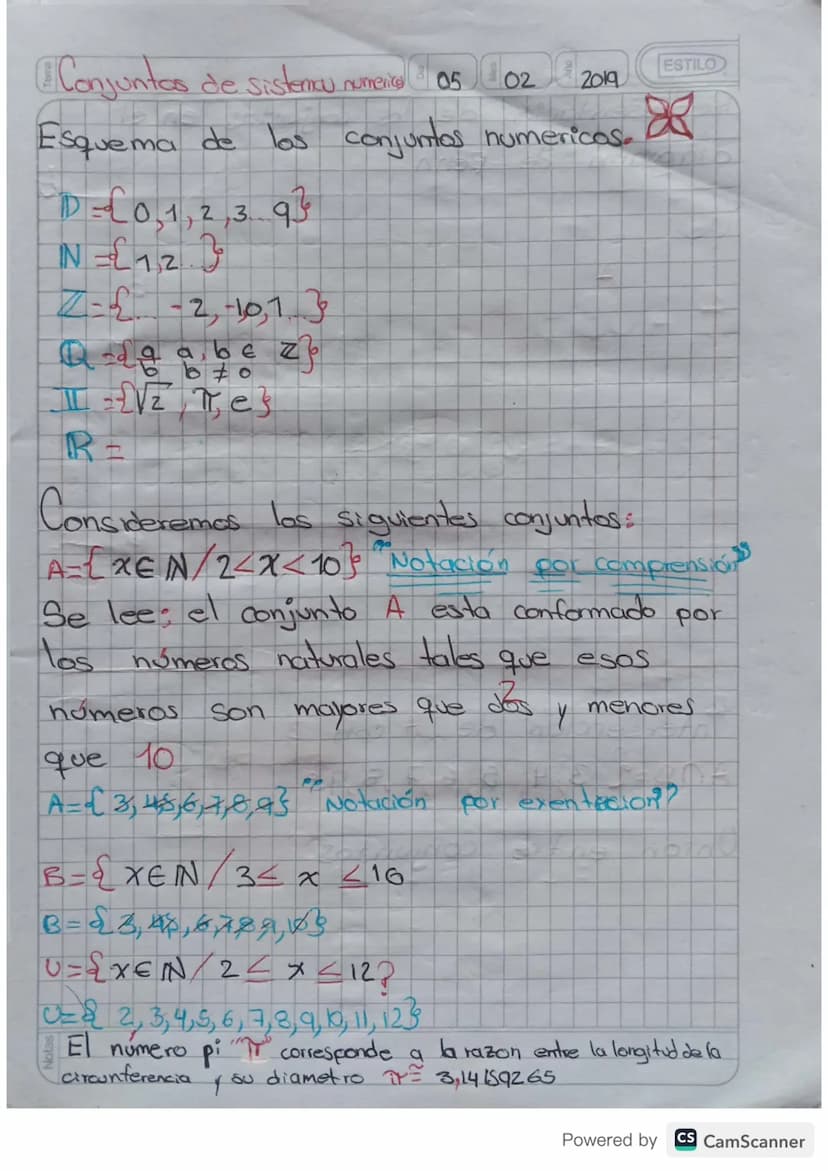 Tema Conjuntos de sistema numerico Día 05 Mes 02 Año 2019 ESTILO
Esquema de los conjuntos numericos.
D={0,1,2,3...9}
N={1,2...}
Z={... -2,-1,0,1...}
Q={a/b a,b ∈ Z b≠0}
II={√2, π, e}
R=
Consideremos los siguientes conjuntos:
A={x∈N/2<x<10} "Notación por comprensión"
Se lee: el conjunto A esta conformado por
los números naturales tales que esos
números son mayores que dos 2 y menores
que 10
A={3,4,5,6,7,8,9} "Notación por exentecion"
B={x∈N/3≤ x ≤10
B={3,4,5,6,7,8,9,10}
U={x∈N/2≤ x ≤12}
U={2,3,4,5,6,7,8,9,10,11,12}
Notas El número pi "π" corresponde a la razon entre la longitud de la
circunferencia y su diametro π≅ 3,14159265
Powered by CS CamScanner